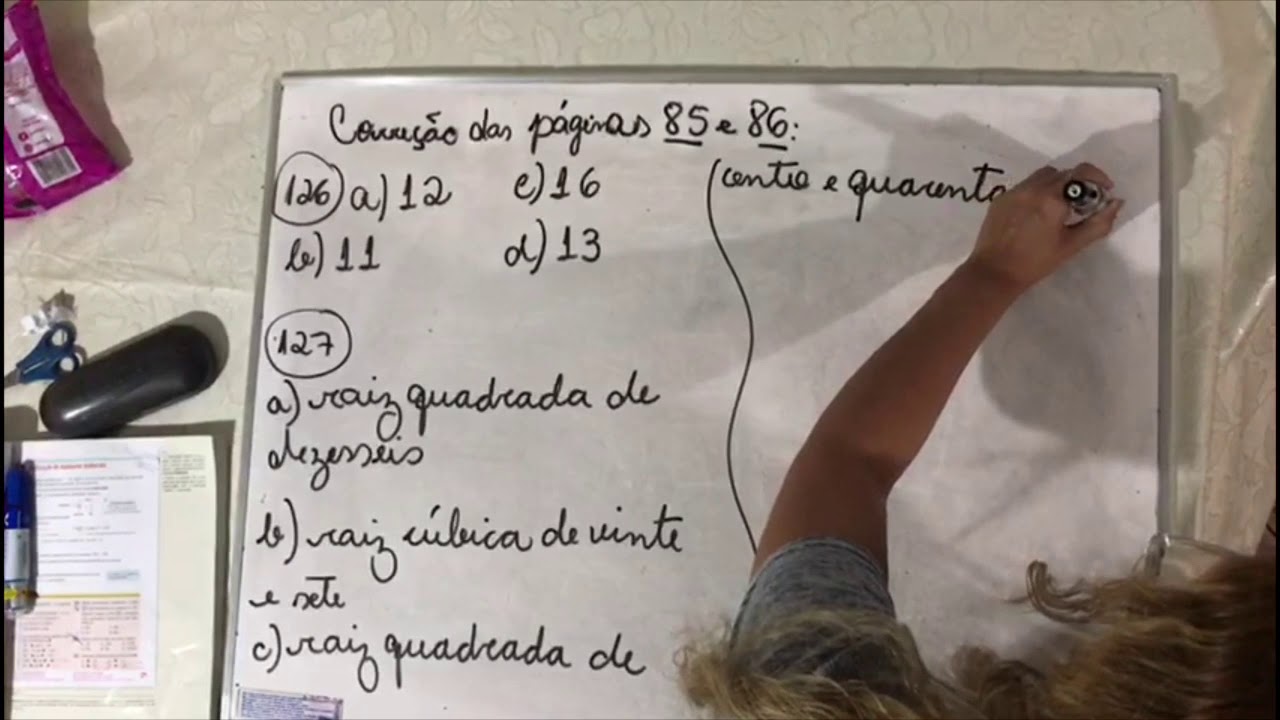 Correção das páginas 85 e 86:
126 a) 12 c) 16
b) 11 d) 13
127
a) raiz quadrada de
dezesseis
b) raiz cúbica de vinte
e sete
c) raiz quadrada de
cento e quarenta